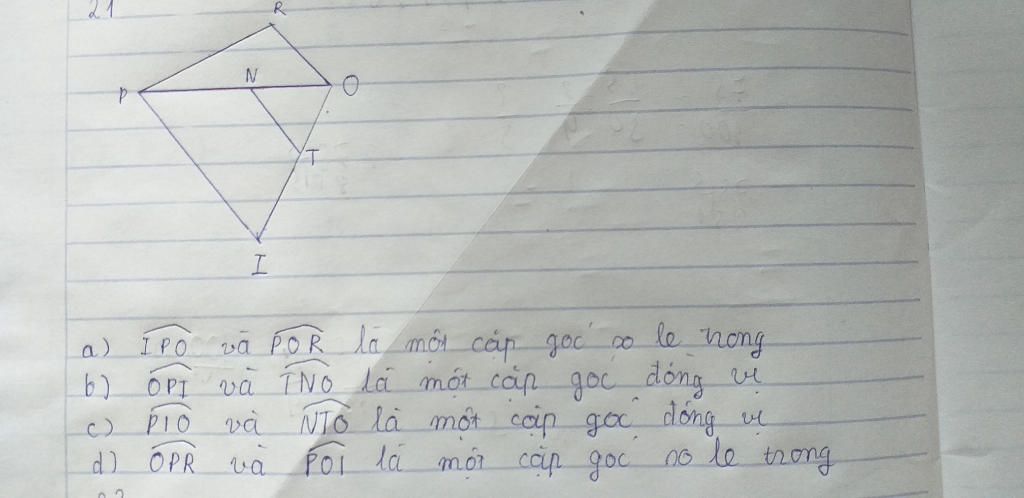 21
R
P
N
O
T
I
a) IPO và POR là một cặp góc so le trong
b) OPI và TNO là một cặp góc đồng vị
c) PIO và NTO là một cặp góc đồng vị
d) OPR và POI là một cặp góc so le trong